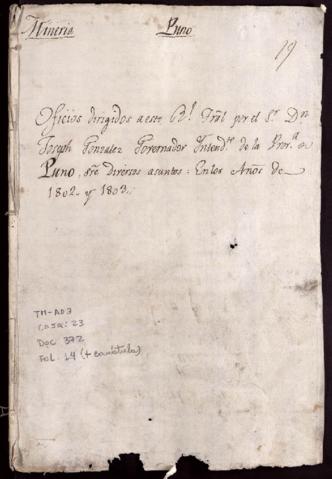 Mineria Puno
19
Oficios dirigidos a este Rl. Tral. por el Sr. Dn
Joseph Gonzalez Governador Intend.te de la Prov.a de
Puno, sre diversos asuntos: En los Años de
1802. y 1803.
TM-AD7
Caja: 23
Doc 372
Fol. 14 (+ carátula)